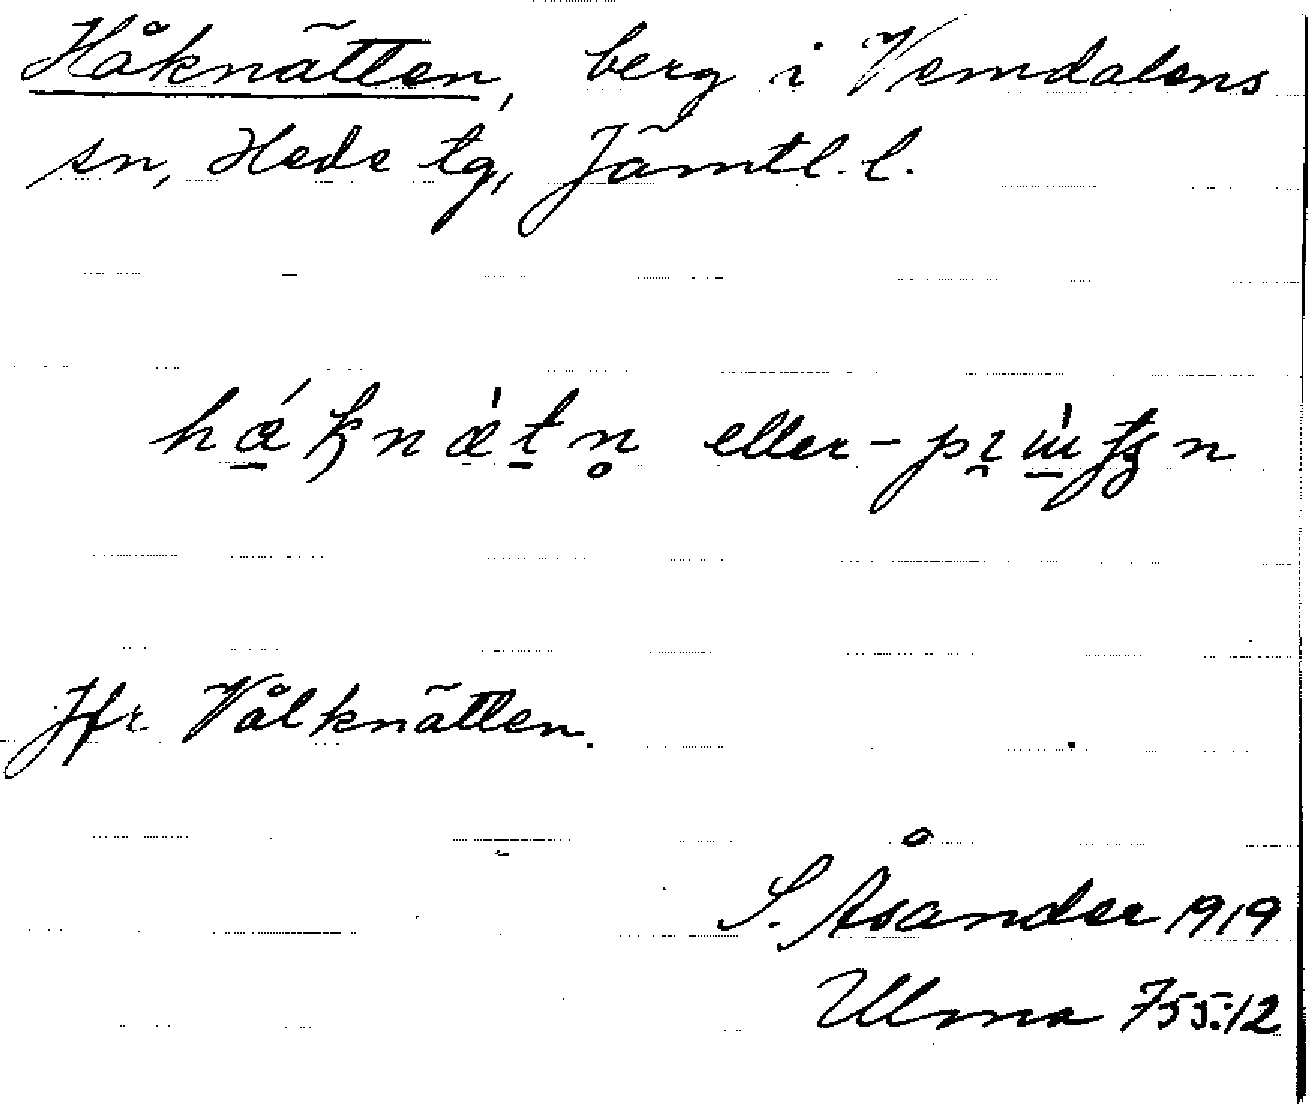 Håknätten, berg i Vemdalens
sn, Hede tg, Jämtl. l.
eller
Jfr Vålknätten.
S. Åsander 1919
Ulma 755:12